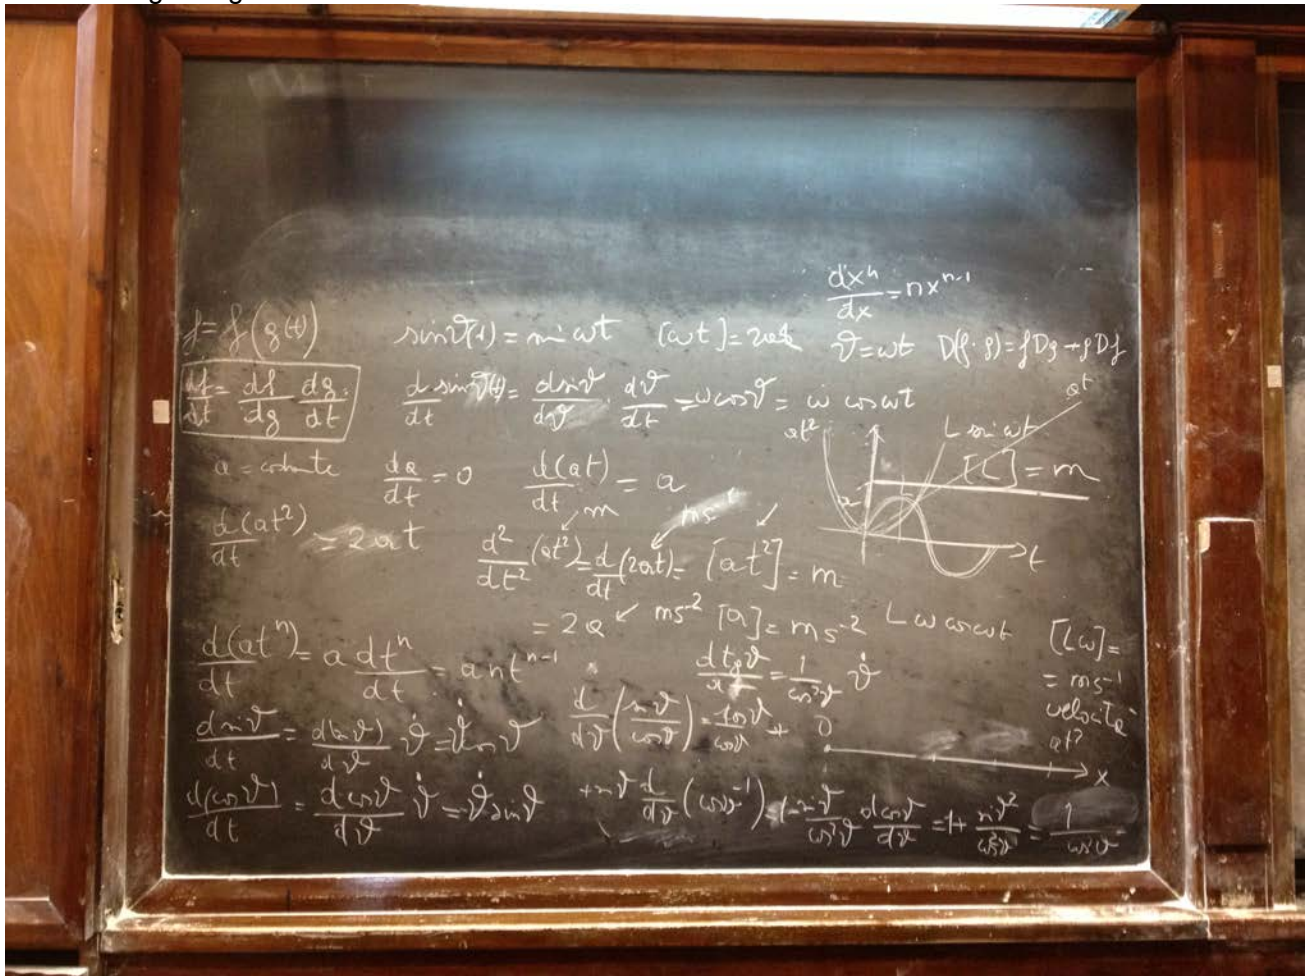 dxⁿ/dx = nxⁿ⁻¹
f = f(g(t))    sinϑ(t) = sin ωt    [ωt] =    ϑ = ωt    D(f·g) = fDg + gDf
df/dt = df/dg dg/dt    d/dt sinϑ(t) = dsinϑ/dϑ · dϑ/dt = ωcosϑ = ω cosωt
at
at²    L sin ωt
a =    da/dt = 0    d(at)/dt = a    [L] = m
m    ms⁻¹
a
d(at²)/dt = 2at    d²/dt² (at²) = d/dt (2at) =    [at²] = m    t
= 2a    ms⁻²    [a] = ms⁻²    Lω cosωt    [Lω] =
d(atⁿ)/dt = a dtⁿ/dt = antⁿ⁻¹    dtgϑ/dt = 1/cos²ϑ ϑ̇    = ms⁻¹
velocità
dsinϑ/dt = d(sinϑ)/dϑ ϑ̇ = ϑ̇cosϑ    d/dϑ (sinϑ/cosϑ) = cosϑ/cosϑ +    0    at²
x
d(cosϑ)/dt = dcosϑ/dϑ ϑ̇ = ϑ̇ sinϑ    + sinϑ d/dϑ (cosϑ⁻¹) = 1 - sinϑ/cos²ϑ dcosϑ/dϑ = 1 + sinϑ²/cos²ϑ = 1/cos²ϑ